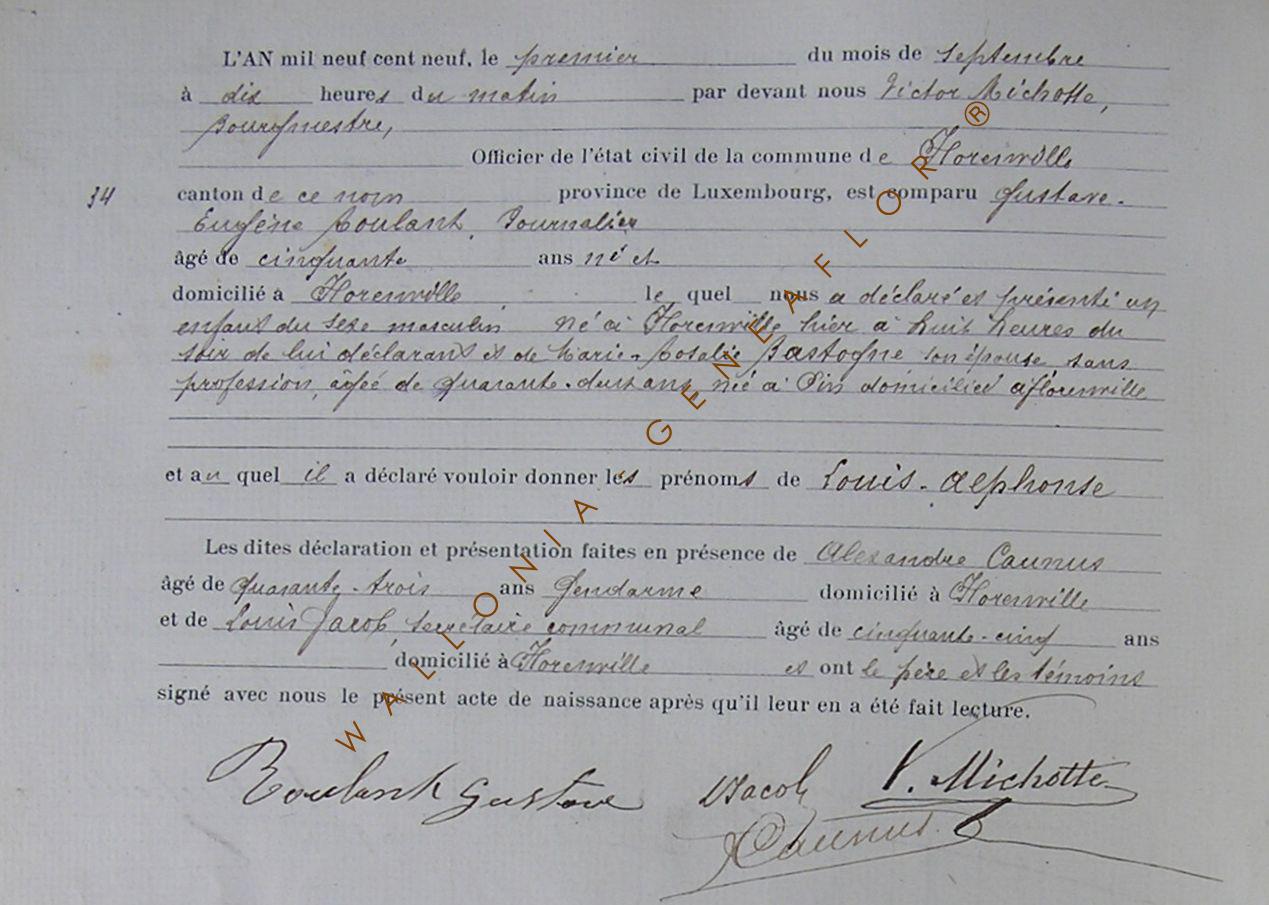 L'AN mil neuf cent neuf, le premier du mois de septembre
à dix heures du matin par devant nous Victor Michotte,
Bourgmestre,
Officier de l'état civil de la commune de Florenville
34 canton de ce nom province de Luxembourg, est comparu Gustave-
Eugène Roulant, Journalier
âgé de cinquante ans né et
domicilié à Florenville lequel nous a déclaré et présenté un
enfant du sexe masculin né à Florenville hier à huit heures du
soir de lui déclarant et de Marie-Rosalie Bastogne son épouse sans
profession, âgée de quarante-deux ans, née à Pin domiciliée à florenville
et au quel il a déclaré vouloir donner les prénoms de Louis-Alphonse
Les dites déclaration et présentation faites en présence de Alexandre Caunus
âgé de quarante-trois ans Gendarme domicilié à Florenville
et de Louis Jacob, secrétaire communal âgé de cinquante-cinq ans
domicilié à Florenville et ont le père et les témoins
signé avec nous le présent acte de naissance après qu'il leur en a été fait lecture.
Roulant Gustave Jacob V. Michotte
Caunus
WALLONIA GENEAFLOR®